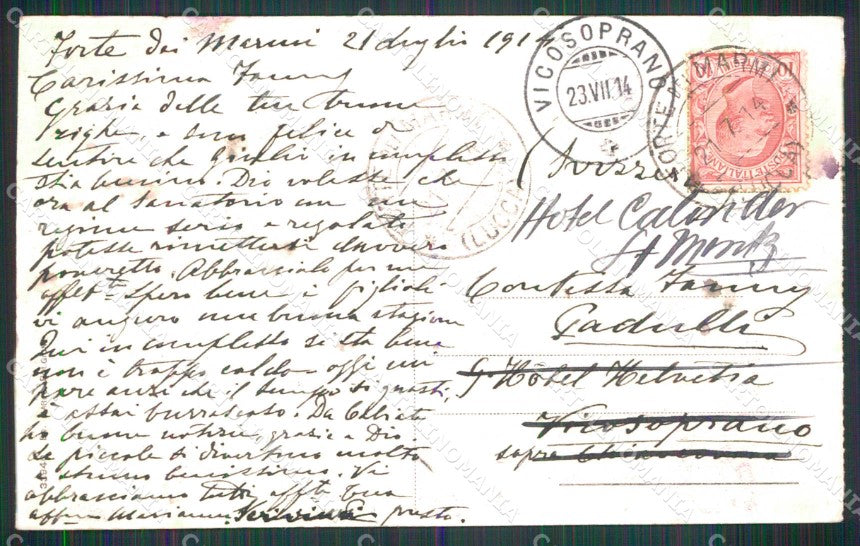 Forte dei Marmi 21 luglio 1914
Carissima Fanny
Grazie delle tue buone
righe, e sono felice di
sentire che Giulio in complesso
stia benino. Dio volesse che
ora al sanatorio con un
regime serio e regolato
potesse rimettersi davvero
poveretto. Abbraccialo per me
affett. Spero bene i figlioli
vi auguro una buona stagione
Qui in complesso si sta bene
non è troppo caldo oggi mi
pare anzi che il tempo si guasti,
è assai burrascoso. Da
ho buone notizie, grazie a Dio.
Le piccole si divertono molto
e stanno benissimo. Vi
abbracciamo tutti afftte tua
Marianna Scrivimi presto.
VICOSOPRANO
23.VII.14
FORTE DEI MARMI
21.7.14
(LUCCA)
POSTE ITALIANE
10
(LUCCA)
(Svizzera)
Hotel Calonder
St Moritz
Contessa Fanny
Padulli
Hôtel Helvetia
Vicosoprano
sopra Chiavenna
CARTOLINOMANIA